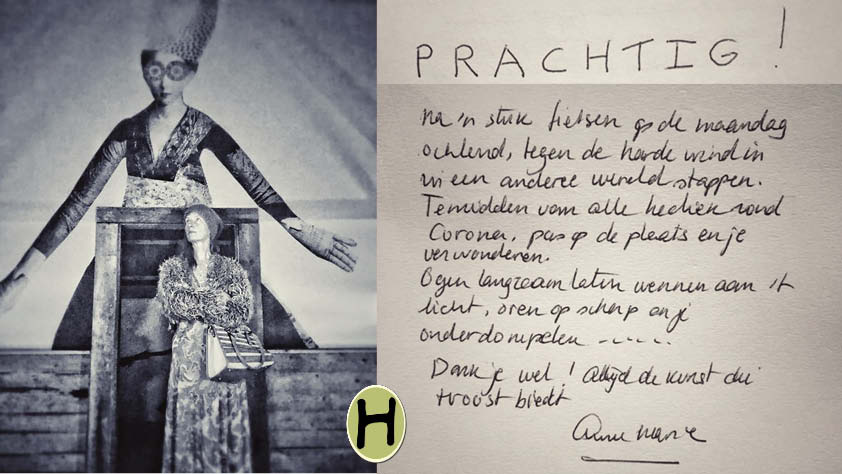 PRACHTIG!
Na 'n stuk fietsen op de maandag
ochtend, tegen de harde wind in
in een andere wereld stappen.
Temidden van alle hectiek rond
Corona, pas op de plaats en je
verwonderen.
Ogen langzaam laten wennen aan 't
licht, oren op scherp en je
onderdompelen ------
Dank je wel! Altijd de kunst die
troost biedt
Anne Marie
H